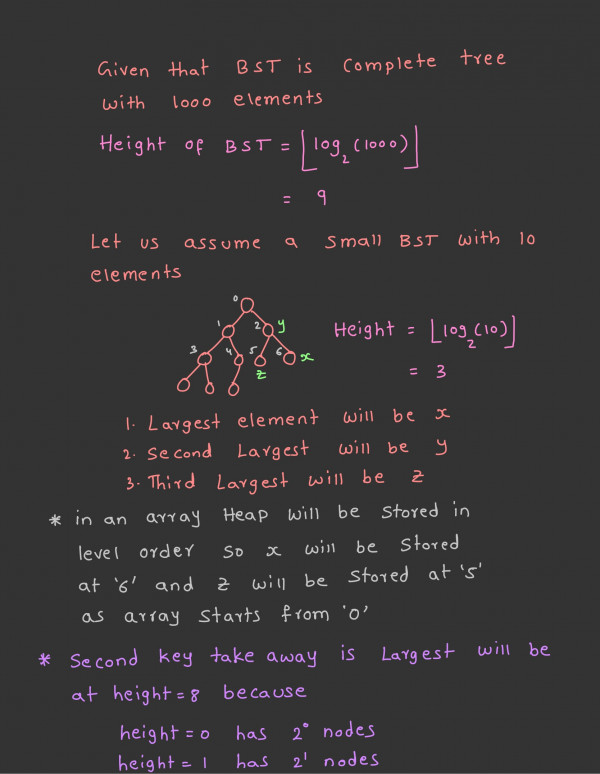 Given that BST is complete tree
with 1000 elements
Height of BST = ⌊log₂(1000)⌋
= 9
Let us assume a small BST with 10
elements
0
1 2 y
3 4 5 6 x
z
Height = ⌊log₂(10)⌋
= 3
1. Largest element will be x
2. Second Largest will be y
3. Third Largest will be z
* in an array Heap will be stored in
level order so x will be stored
at '6' and z will be stored at '5'
as array starts from '0'
* Second key take away is Largest will be
at height = 8 because
height = 0 has 2⁰ nodes
height = 1 has 2¹ nodes